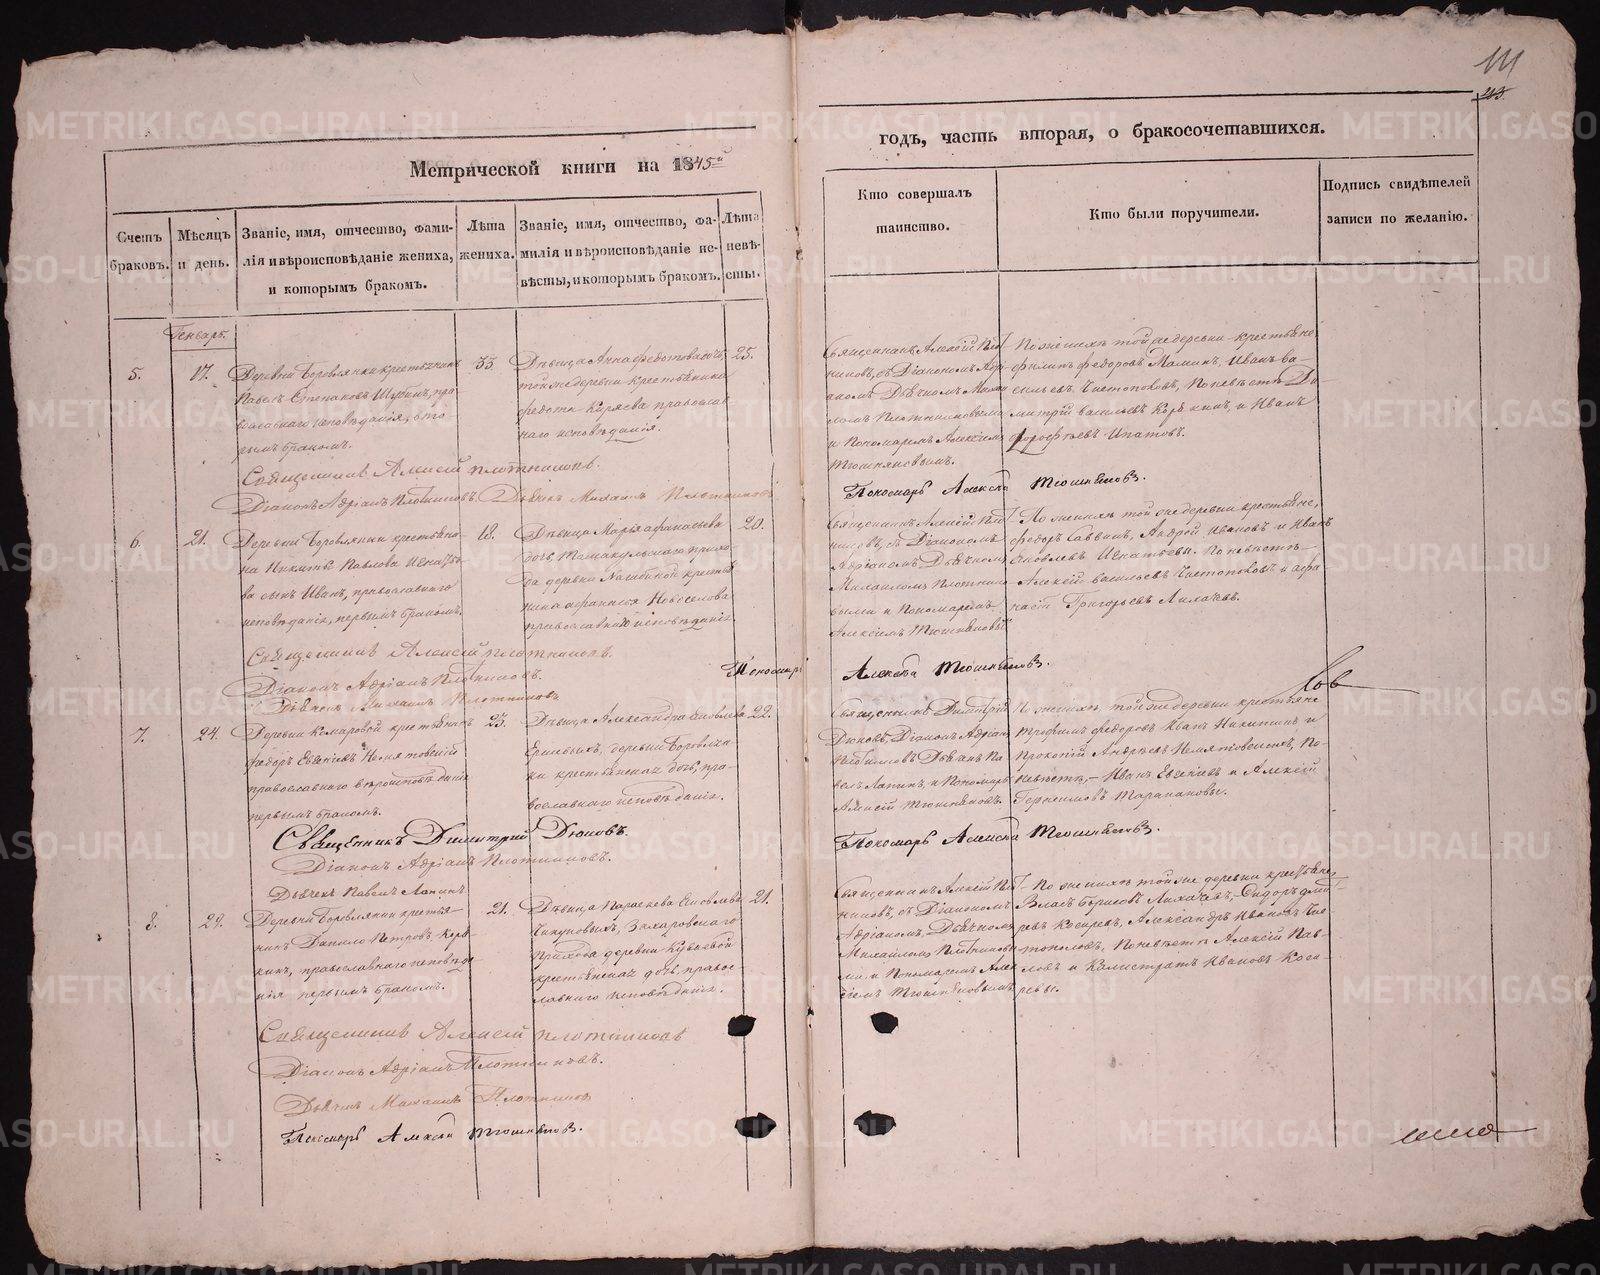 111
Метрической книги на 1845й
годъ, часть вторая, о бракосочетавшихся.
Счетъ браковъ.
Мѣсяцъ и день.
Званіе, имя, отчество, фами-
лія и вѣроисповѣданіе жениха,
и которымъ бракомъ.
Лѣта
жениха.
Званіе, имя, отчество, фа-
милія и вѣроисповѣданіе не-
вѣсты, и которымъ бракомъ.
Лѣта
невѣ-
сты.
Кто совершалъ
таинство.
Кто были поручители.
Подпись свидѣтелей
записи по желанію.
Генварь.
5.
17.
Деревни Боровлянки крестьянинъ
Павелъ Степановъ Шубинъ, пра-
вославнаго исповѣданія, вто-
рымъ бракомъ.
33.
Дѣвица Анна Федотова дочь,
той же деревни крестьянина
Федота Киряева православ-
наго исповѣданія.
25.
Священникъ Алексій Плот-
никовъ, съ Діакономъ Адрі-
аномъ, Дьячкомъ Михаи-
ломъ Плотниковыми
и Пономаремъ Алексіемъ
Тюшняковымъ.
По женихѣ той же деревни крестьяне
Филипъ Федоровъ Маминъ, Иванъ Ва-
сильевъ Чистополовъ, По невѣстѣ Ди-
митрій Васильевъ Корякинъ, и Иванъ
Дорофѣевъ Ипатовъ.
Священникъ Алексей Плотниковъ.
Діаконъ Адріанъ Плотниковъ. Дьячекъ Михаилъ Плотниковъ
Пономарь Алексѣй Тюшняковъ.
6.
21.
Деревни Боровлянки крестьяни-
на Никиты Павлова Игнатье-
ва сынъ Иванъ, православнаго
исповѣданія, первымъ бракомъ.
18.
Дѣвица Марья Афанасьева
дочь, Тамакульскаго прихо-
да деревни крестья-
нина Афанасія Новоселова
православнаго исповѣданія
20.
Священникъ Алексій Плот-
никовъ, съ Діакономъ
Адріаномъ, Дьячкомъ
Михаиломъ Плотнико-
выми и Пономаремъ
Алексіемъ Тюшняковымъ
По женихѣ той же деревни крестьяне,
Федоръ Саввинъ, Андрей Ивановъ и Иванъ
Яковлевъ Игнатьевы. По невѣстѣ
Алексій Васильевъ Чистополовъ и Афа-
насій Григорьевъ Лихачевъ.
Священникъ Алексей Плотниковъ.
Діаконъ Адріанъ Плотниковъ.
Дьячекъ Михаилъ Плотниковъ
Пономарь Алексѣй Тюшняковъ.
7.
24.
Деревни Комаровой крестьянинъ
Федоръ Евсеніевъ
православнаго вѣроисповѣданія
первымъ бракомъ.
23.
Дѣвица Александра Яковлева
деревни Боровлян-
ки крестьянская дочь, пра-
вославнаго исповѣданія.
22.
Священникъ Димитрій
Дюковъ, Діаконъ Адріанъ
Плотниковъ Дьячекъ Па-
велъ Ланинъ, и Пономарь
Алексій Тюшняковъ.
По женихѣ, той же деревни крестьяне
Трофимъ Федоровъ Иванъ Никитинъ и
Прокопій Андреевъ По
невѣстѣ,- Иванъ Евсеніевъ и Алексій
Герасимовъ Таракановы.
Священникъ Димитрій Дюковъ.
Діаконъ Адріанъ Плотниковъ.
Дьячекъ Павелъ Ланинъ
Пономарь Алексѣй Тюшняковъ.
8.
29.
Деревни Боровлянки крестья-
нинъ Данило Петровъ Коря-
кинъ, православнаго исповѣда-
нія первымъ бракомъ.
21.
Дѣвица Параскева Яковлева
Захаровскаго
прихода деревни
крестьянская дочь, правос-
лавнаго исповѣданія.
21.
Священникъ Алексій Плот-
никовъ, съ Діакономъ
Адріаномъ, Дьячкомъ
Михаиломъ Плотниковы-
ми и Пономаремъ Алек-
сіемъ Тюшняковымъ
По женихѣ той же деревни крестьяне
Власъ Борисовъ Лихачевъ, Сидоръ Дмит-
ревъ Косаревъ, Александръ Ивановъ Чис-
тополовъ, По невѣстѣ Алексій Пав-
ловъ и Калистратъ Ивановъ Коса-
ревы.
Священникъ Алексей Плотниковъ
Діаконъ Адріанъ Плотниковъ.
Дьячекъ Михаилъ Плотниковъ
Пономарь Алексѣй Тюшняковъ.
METRIKI.GASO-URAL.RU